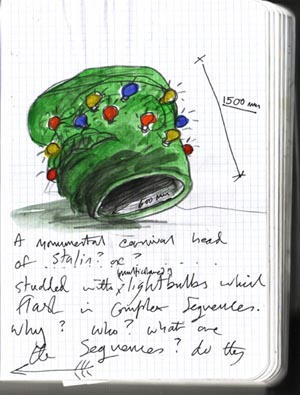 1500 mm
600 mm
A monumental carnival head
of .. Stalin? or? . . . . . .
multicoloured
studded with lightbulbs which
flash in complex sequences.
Why? who? what are
the sequences? do they